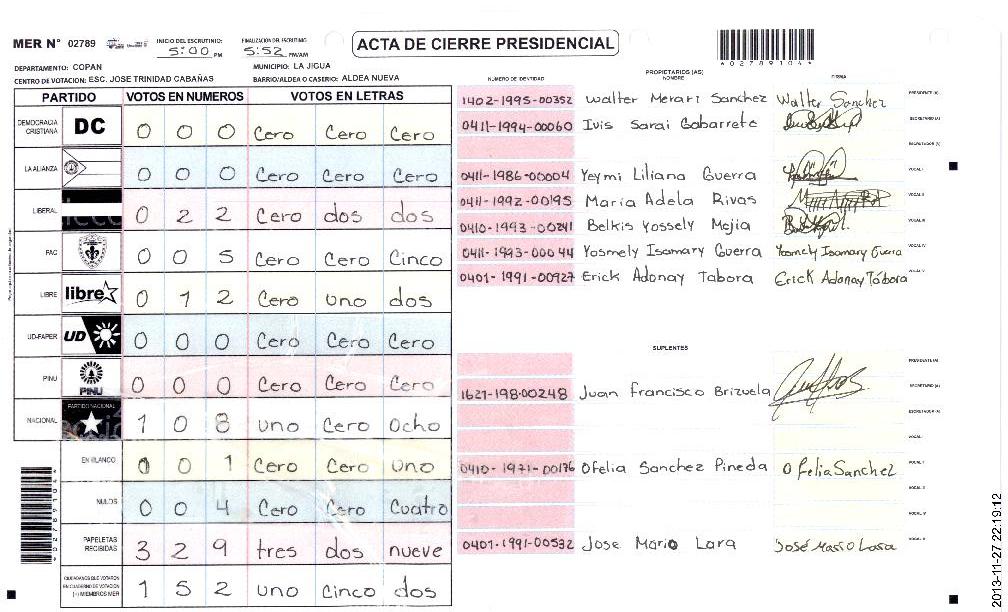 MER N° 02789
INICIO DEL ESCRUTINIO 5:00 PM
FINALIZACIÓN DEL ESCRUTINIO 5:52 PM/AM
ACTA DE CIERRE PRESIDENCIAL
4027891044
DEPARTAMENTO: COPAN MUNICIPIO: LA JIGUA
CENTRO DE VOTACION: ESC. JOSE TRINIDAD CABAÑAS BARRIO/ALDEA O CASERIO: ALDEA NUEVA
PARTIDO VOTOS EN NUMEROS VOTOS EN LETRAS
DEMOCRACIA CRISTIANA DC 0 0 0 Cero Cero Cero
LA ALIANZA 0 0 0 Cero Cero Cero
LIBERAL 0 2 2 Cero dos dos
PAC 0 0 5 Cero Cero Cinco
LIBRE libre 0 1 2 Cero uno dos
UD-FAPER UD 0 0 0 Cero Cero Cero
PINU PINU 0 0 0 Cero Cero Cero
NACIONAL PARTIDO NACIONAL 1 0 8 uno Cero ocho
EN BLANCO 0 0 1 Cero Cero uno
NULOS 0 0 4 Cero Cero Cuatro
PAPELETAS RECIBIDAS 3 2 9 tres dos nueve
CIUDADANOS QUE VOTARON EN CUADERNO DE VOTACION (+) MIEMBROS MER 1 5 2 uno cinco dos
NUMERO DE IDENTIDAD PROPIETARIOS (AS) NOMBRE FIRMA
1402-1995-00352 Walter Merari Sanchez Walter Sanchez PRESIDENTE (A)
0411-1994-00060 Ivis Sarai Gabarrete SECRETARIO (A)
ESCRUTADOR (A)
0411-1986-00004 Yeymi Liliana Guerra VOCAL I
0411-1992-00195 Maria Adela Rivas VOCAL II
0410-1993-00241 Belkis Yossely Mejia VOCAL III
0411-1993-00044 Yosmely Isamary Guerra Yosmely Isamary Guerra VOCAL IV
0401-1991-00927 Erick Adonay Tabora Erick Adonay Tábora VOCAL V
SUPLENTES
PRESIDENTE (A)
1627-198-00248 Juan Francisco Brizuela SECRETARIO (A)
ESCRUTADOR (A)
VOCAL I
0410-1971-00176 Ofelia Sanchez Pineda Ofelia Sanchez
VOCAL IV
0401-1991-00532 Jose Mario Lara José Mario Lara
4027891044
2013-11-27 22:19:12